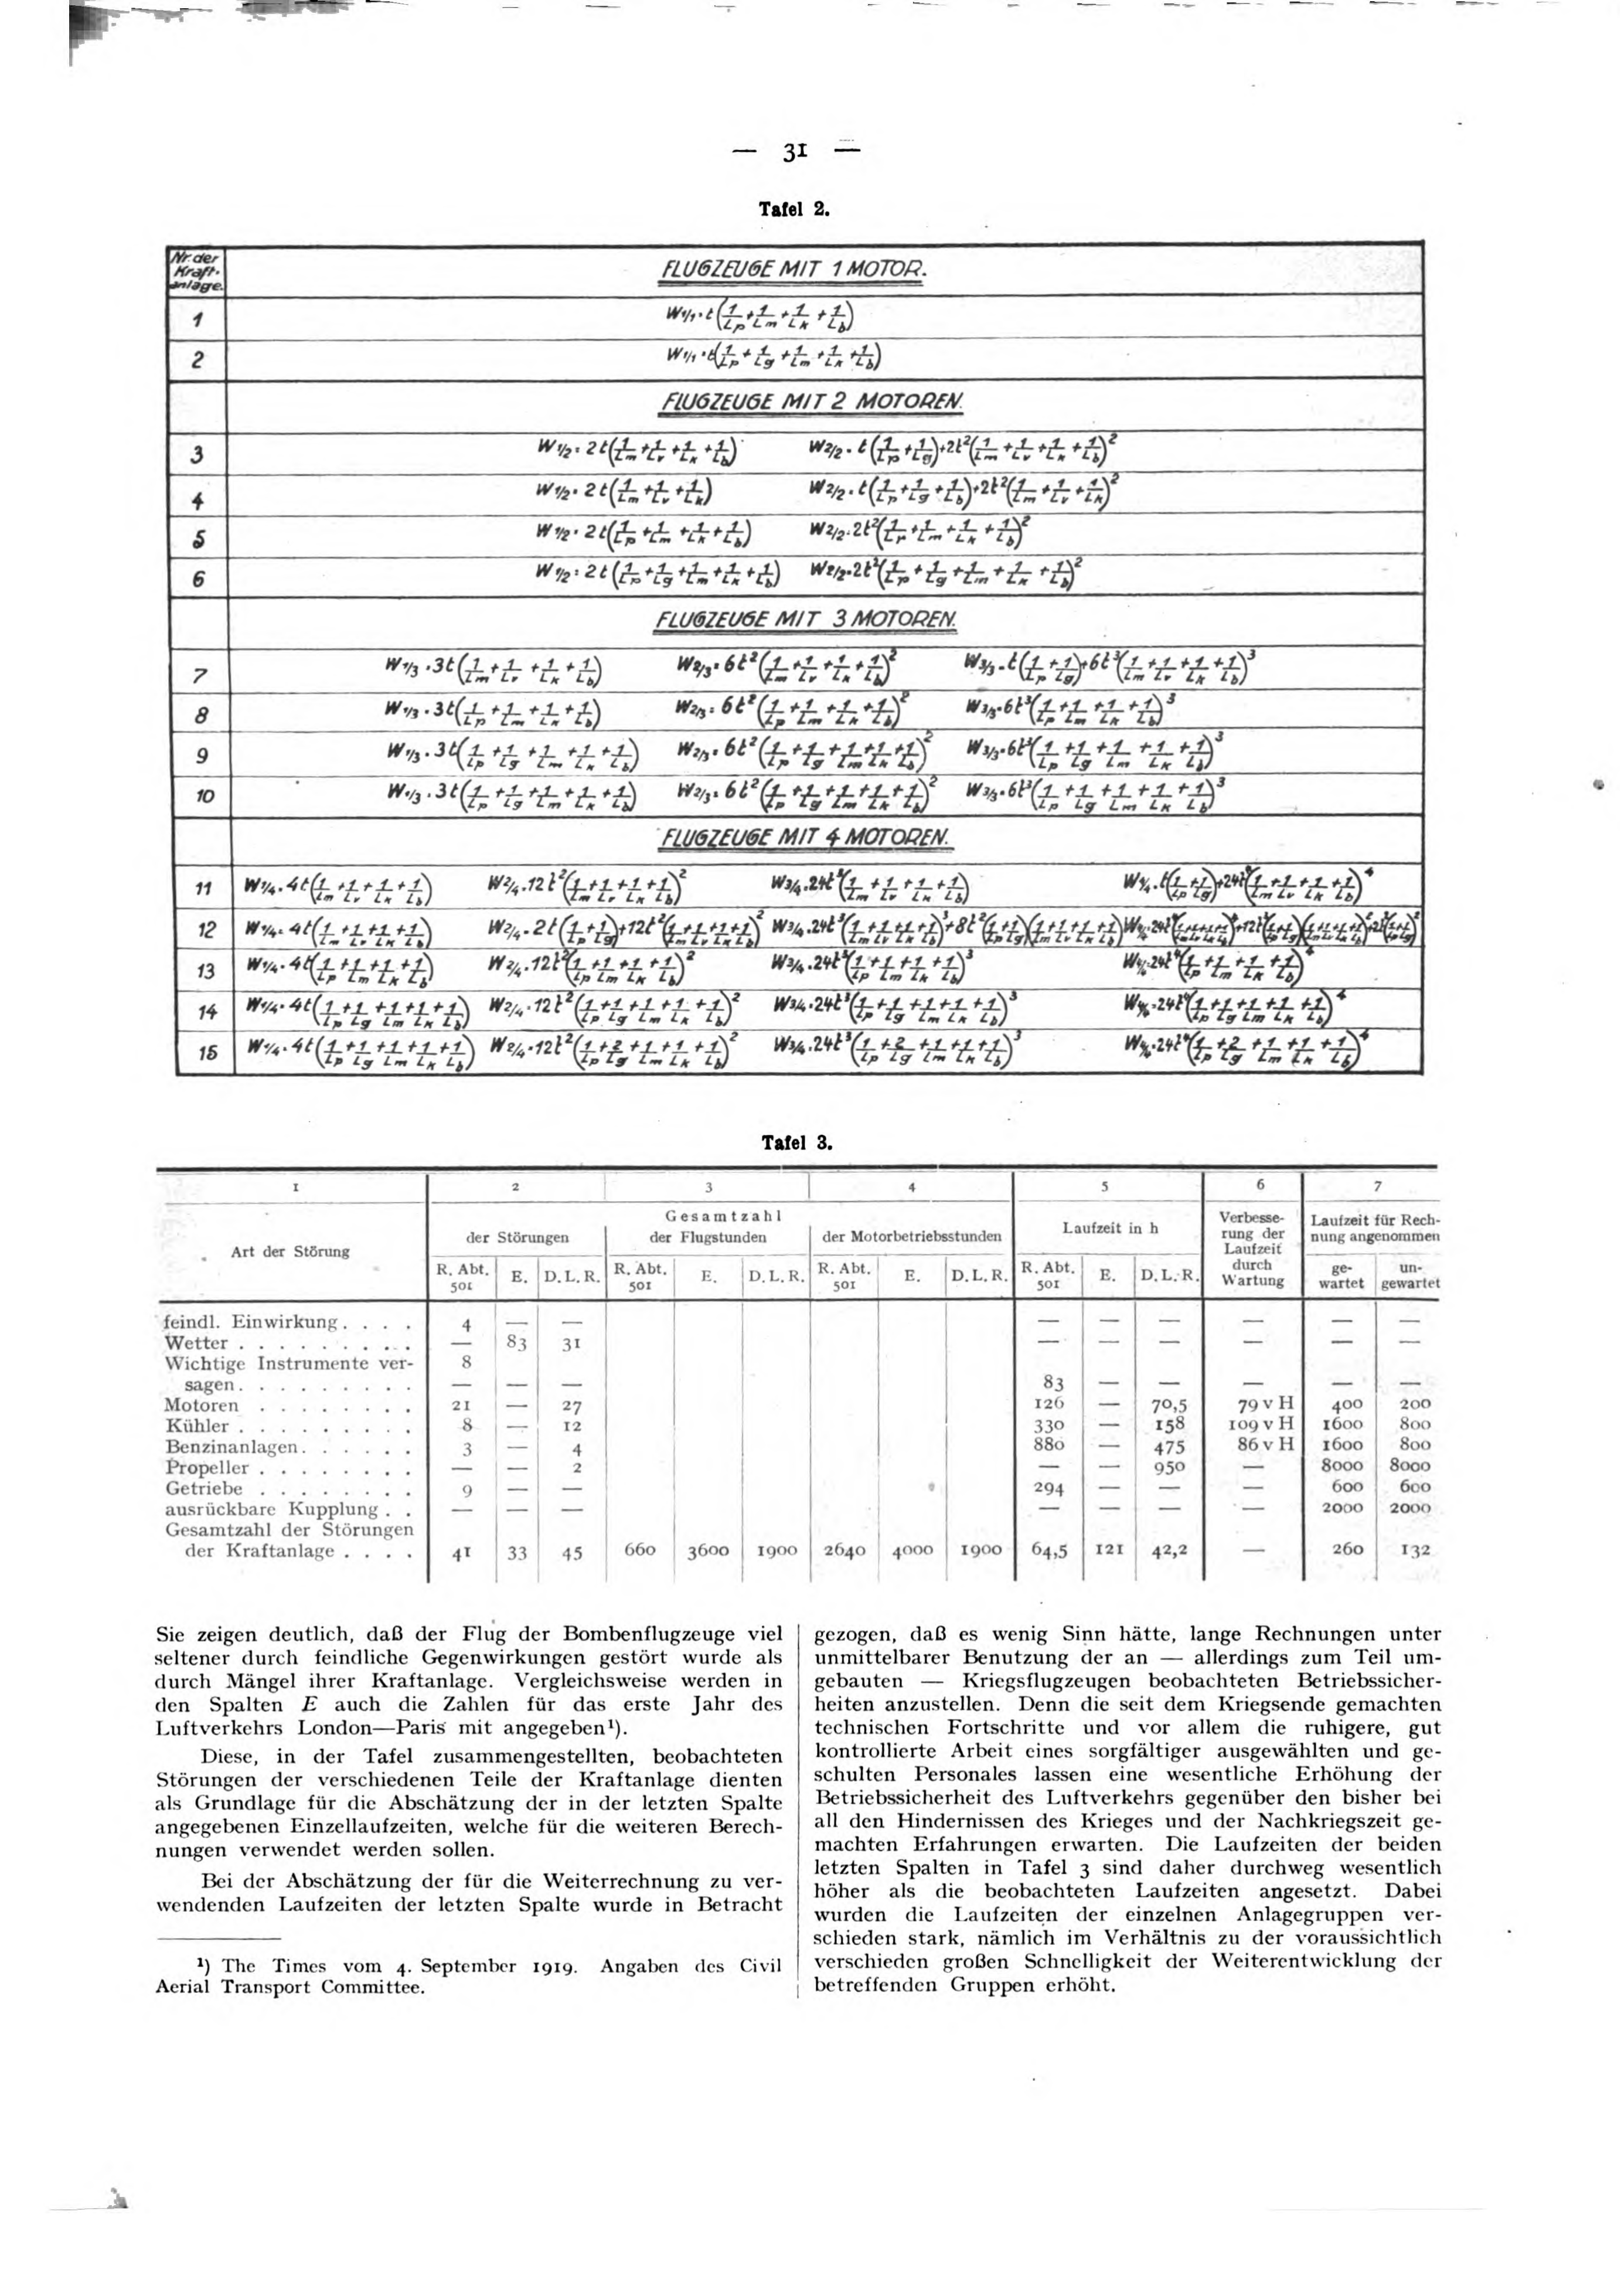 — 31 —
Tafel 2.
Nr. der Kraft-anlage.
FLUGZEUGE MIT 1 MOTOR.
1 W1/1 = t(1/Lp + 1/Lm + 1/Lk + 1/Lb)
2 W1/1 = t(1/Lp + 1/Lg + 1/Lm + 1/Lk + 1/Lb)
FLUGZEUGE MIT 2 MOTOREN.
3 W1/2 = 2t(1/Lm + 1/Lv + 1/Lk + 1/Lb) W2/2 = t(1/Lp + 1/Lg) + 2t²(1/Lm + 1/Lv + 1/Lk + 1/Lb)²
4 W1/2 = 2t(1/Lm + 1/Lv + 1/Lk) W2/2 = t(1/Lp + 1/Lg + 1/Lb) + 2t²(1/Lm + 1/Lv + 1/Lk)²
5 W1/2 = 2t(1/Lp + 1/Lm + 1/Lk + 1/Lb) W2/2 = 2t²(1/Lp + 1/Lm + 1/Lk + 1/Lb)²
6 W1/2 = 2t(1/Lp + 1/Lg + 1/Lm + 1/Lk + 1/Lb) W2/2 = 2t²(1/Lp + 1/Lg + 1/Lm + 1/Lk + 1/Lb)²
FLUGZEUGE MIT 3 MOTOREN.
7 W1/3 = 3t(1/Lm + 1/Lv + 1/Lk + 1/Lb) W2/3 = 6t²(1/Lm + 1/Lv + 1/Lk + 1/Lb)² W3/3 = t(1/Lp + 1/Lg) + 6t³(1/Lm + 1/Lv + 1/Lk + 1/Lb)³
8 W1/3 = 3t(1/Lp + 1/Lm + 1/Lk + 1/Lb) W2/3 = 6t²(1/Lp + 1/Lm + 1/Lk + 1/Lb)² W3/3 = 6t³(1/Lp + 1/Lm + 1/Lk + 1/Lb)³
9 W1/3 = 3t(1/Lp + 1/Lg + 1/Lm + 1/Lk + 1/Lb) W2/3 = 6t²(1/Lp + 1/Lg + 1/Lm + 1/Lk + 1/Lb)² W3/3 = 6t³(1/Lp + 1/Lg + 1/Lm + 1/Lk + 1/Lb)³
10 W1/3 = 3t(1/Lp + 1/Lg + 1/Lm + 1/Lk + 1/Lb) W2/3 = 6t²(1/Lp + 1/Lg + 1/Lm + 1/Lk + 1/Lb)² W3/3 = 6t³(1/Lp + 1/Lg + 1/Lm + 1/Lk + 1/Lb)³
FLUGZEUGE MIT 4 MOTOREN.
11 W1/4 = 4t(1/Lm + 1/Lv + 1/Lk + 1/Lb) W2/4 = 12t²(1/Lm + 1/Lv + 1/Lk + 1/Lb)² W3/4 = 24t³(1/Lm + 1/Lv + 1/Lk + 1/Lb) W4/4 = t(1/Lp + 1/Lg) + 24t⁴(1/Lm + 1/Lv + 1/Lk + 1/Lb)⁴
12 W1/4 = 4t(1/Lm + 1/Lv + 1/Lk + 1/Lb) W2/4 = 2t(1/Lp + 1/Lg) + 12t²(1/Lm + 1/Lv + 1/Lk + 1/Lb)² W3/4 = 24t³(1/Lm + 1/Lv + 1/Lk + 1/Lb)³ + 8t²(1/Lp + 1/Lg)(1/Lm + 1/Lv + 1/Lk + 1/Lb)
13 W1/4 = 4t(1/Lp + 1/Lm + 1/Lk + 1/Lb) W2/4 = 12t²(1/Lp + 1/Lm + 1/Lk + 1/Lb)² W3/4 = 24t³(1/Lp + 1/Lm + 1/Lk + 1/Lb)³ W4/4 = 24t⁴(1/Lp + 1/Lm + 1/Lk + 1/Lb)⁴
14 W1/4 = 4t(1/Lp + 1/Lg + 1/Lm + 1/Lk + 1/Lb) W2/4 = 12t²(1/Lp + 1/Lg + 1/Lm + 1/Lk + 1/Lb)² W3/4 = 24t³(1/Lp + 1/Lg + 1/Lm + 1/Lk + 1/Lb)³ W4/4 = 24t⁴(1/Lp + 1/Lg + 1/Lm + 1/Lk + 1/Lb)⁴
15 W1/4 = 4t(1/Lp + 1/Lg + 1/Lm + 1/Lk + 1/Lb) W2/4 = 12t²(1/Lp + 2/Lg + 1/Lm + 1/Lk + 1/Lb)² W3/4 = 24t³(1/Lp + 2/Lg + 1/Lm + 1/Lk + 1/Lb)³ W4/4 = 24t⁴(1/Lp + 2/Lg + 1/Lm + 1/Lk + 1/Lb)⁴
Tafel 3.
1 2 3 4 5 6 7
Art der Störung
Gesamtzahl
der Störungen der Flugstunden der Motorbetriebsstunden
Laufzeit in h
Verbesse-
rung der
Laufzeit
durch
Wartung
Laufzeit für Rech-
nung angenommen
R. Abt. 501 E. D. L. R. R. Abt. 501 E. D. L. R. R. Abt. 501 E. D. L. R. R. Abt. 501 E. D. L. R. ge-wartet un-gewartet
feindl. Einwirkung . . . . 4 — — — — — — — —
Wetter . . . . . . . . . — 83 31 — — — — — —
Wichtige Instrumente ver- 8
sagen . . . . . . . . . — — — 83 — — — — —
Motoren . . . . . . . . 21 — 27 126 — 70,5 79 v H 400 200
Kühler . . . . . . . . . 8 — 12 330 — 158 109 v H 1600 800
Benzinanlagen . . . . . . 3 — 4 880 — 475 86 v H 1600 800
Propeller . . . . . . . . — — 2 — — 950 — 8000 8000
Getriebe . . . . . . . . 9 — — 294 — — — 600 600
ausrückbare Kupplung . . — — — — — — — 2000 2000
Gesamtzahl der Störungen
der Kraftanlage . . . . 41 33 45 660 3600 1900 2640 4000 1900 64,5 121 42,2 — 260 132
Sie zeigen deutlich, daß der Flug der Bombenflugzeuge viel
seltener durch feindliche Gegenwirkungen gestört wurde als
durch Mängel ihrer Kraftanlage. Vergleichsweise werden in
den Spalten E auch die Zahlen für das erste Jahr des
Luftverkehrs London—Paris mit angegeben¹).
Diese, in der Tafel zusammengestellten, beobachteten
Störungen der verschiedenen Teile der Kraftanlage dienten
als Grundlage für die Abschätzung der in der letzten Spalte
angegebenen Einzellaufzeiten, welche für die weiteren Berech-
nungen verwendet werden sollen.
Bei der Abschätzung der für die Weiterrechnung zu ver-
wendenden Laufzeiten der letzten Spalte wurde in Betracht
¹) The Times vom 4. September 1919. Angaben des Civil
Aerial Transport Committee.
gezogen, daß es wenig Sinn hätte, lange Rechnungen unter
unmittelbarer Benutzung der an — allerdings zum Teil um-
gebauten — Kriegsflugzeugen beobachteten Betriebssicher-
heiten anzustellen. Denn die seit dem Kriegsende gemachten
technischen Fortschritte und vor allem die ruhigere, gut
kontrollierte Arbeit eines sorgfältiger ausgewählten und ge-
schulten Personales lassen eine wesentliche Erhöhung der
Betriebssicherheit des Luftverkehrs gegenüber den bisher bei
all den Hindernissen des Krieges und der Nachkriegszeit ge-
machten Erfahrungen erwarten. Die Laufzeiten der beiden
letzten Spalten in Tafel 3 sind daher durchweg wesentlich
höher als die beobachteten Laufzeiten angesetzt. Dabei
wurden die Laufzeiten der einzelnen Anlagegruppen ver-
schieden stark, nämlich im Verhältnis zu der voraussichtlich
verschieden großen Schnelligkeit der Weiterentwicklung der
betreffenden Gruppen erhöht.